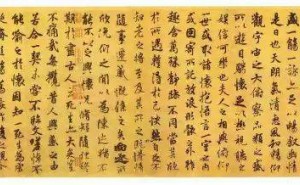 盛一觴一詠亦足以暢敘幽情
是日也天朗氣清惠風和暢仰
觀宇宙之大俯察品類之盛
所以遊目騁懷足以極視聽之
娛信可樂也夫人之相與俯仰
一世或取諸懷抱悟言一室之內
或因寄所託放浪形骸之外雖
趣舍萬殊靜躁不同當其欣
於所遇暫得於己快然自足不
知老之將至及其所之既惓情
隨事遷感慨係之矣向之所
欣俛仰之閒以為陳迹猶不
能不以之興懷況脩短隨化終
期於盡古人云死生亦大矣豈
不痛哉每攬昔人興感之由
若合一契未嘗不臨文嗟悼不
能喻之於懷固知一死生為